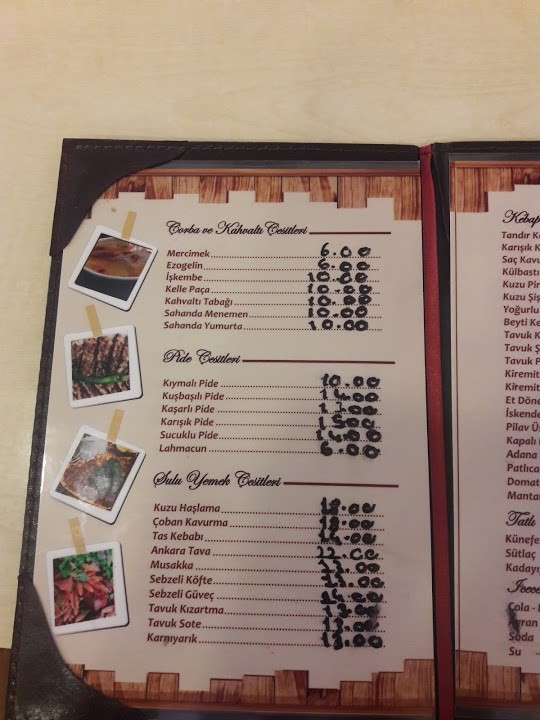 Çorba ve Kahvaltı Çeşitleri
Mercimek 6.00
Ezogelin 6.00
İşkembe 10.00
Kelle Paça 10.00
Kahvaltı Tabağı 10.00
Sahanda Menemen 10.00
Sahanda Yumurta 10.00
Pide Çeşitleri
Kıymalı Pide 10.00
Kuşbaşılı Pide 14.00
Kaşarlı Pide
Karışık Pide 15.00
Sucuklu Pide 14.00
Lahmacun 6.00
Sulu Yemek Çeşitleri
Kuzu Haşlama 18.00
Çoban Kavurma 18.00
Tas Kebabı
Ankara Tava 22.00
Musakka 13.00
Sebzeli Köfte
Sebzeli Güveç
Tavuk Kızartma 13.00
Tavuk Sote 13.00
Karnıyarık 13.00
Kebap
Tandır K
Karışık K
Saç Kavu
Külbastı
Kuzu Pir
Kuzu Şiş
Yoğurlu
Beyti Ke
Tavuk K
Tavuk Ş
Tavuk P
Kiremit
Kiremit
Et Döne
İskende
Pilav Ü
Kapalı
Adana
Patlıca
Domat
Mantar
Tatlı
Künefe
Sütlaç
Kadayı
Cola -
Soda
Su